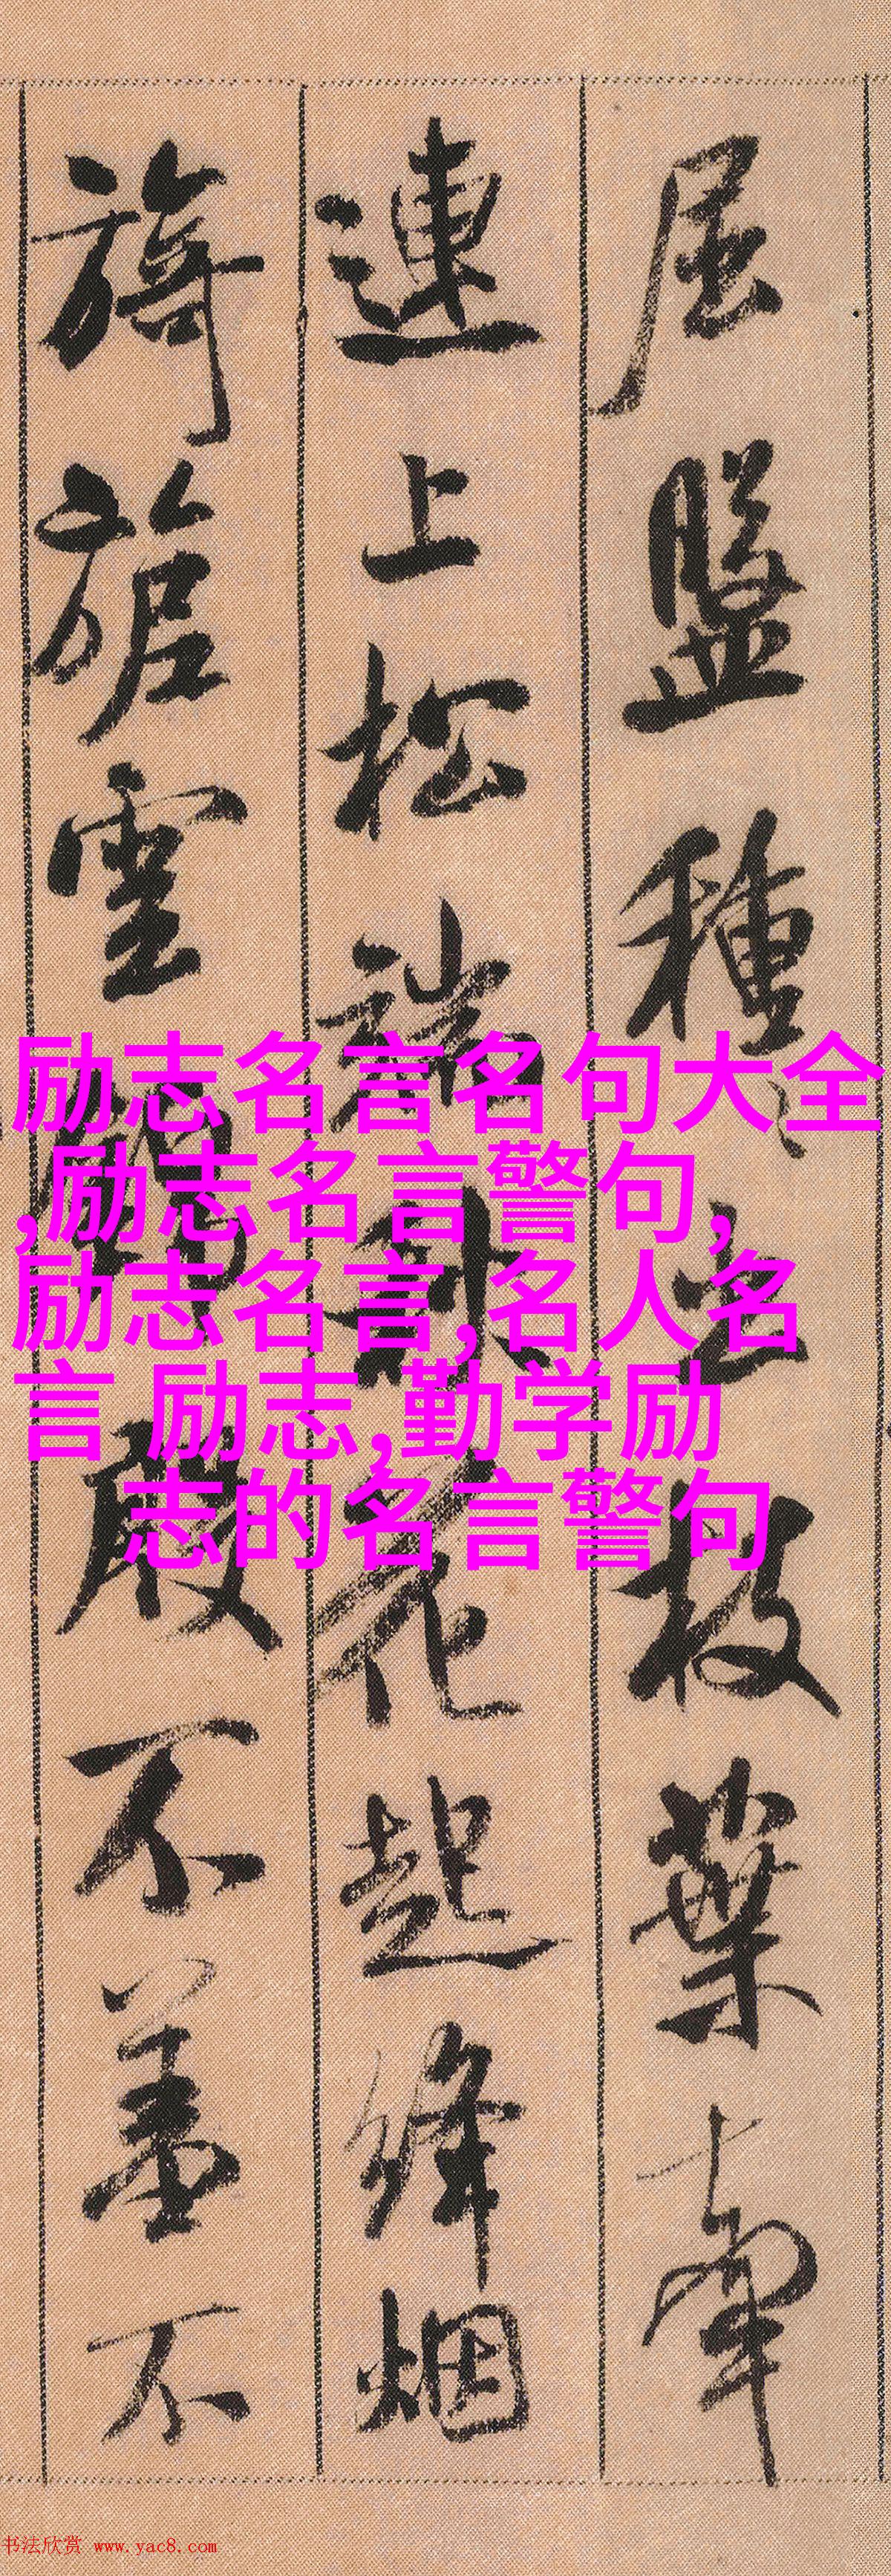 屈盤種〻出枝葉牽
連上松端秋花起絳烟
旖旎雲錦殷不羞不
励志名言名句大全
,励志名言警句,
励志名言,名人名
言 励志,勤学励
志的名言警句
书法欣赏 www.yac8.com